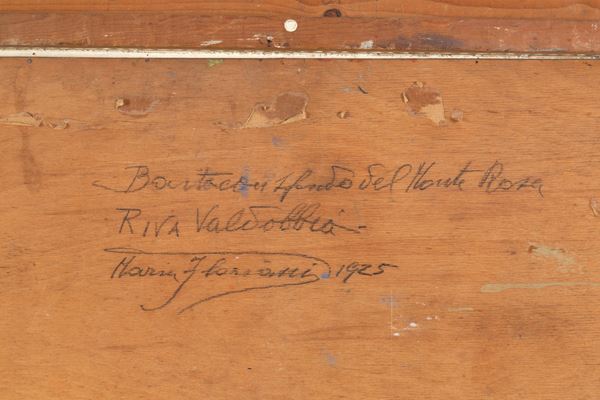 Baita con sfondo del Monte Rosa
RIVA Valdobbia
Maria Floriani 1925